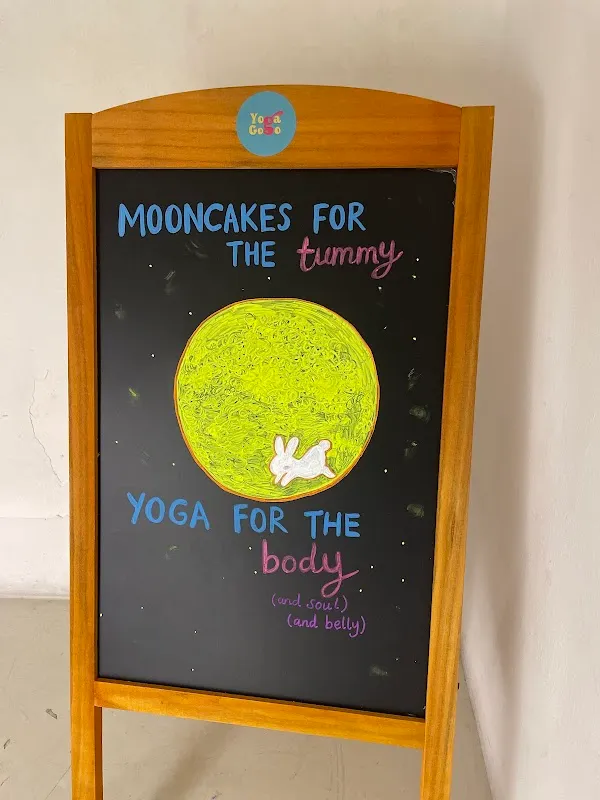 Yoga
GoGo
MOONCAKES FOR
THE tummy
YOGA FOR THE
body
(and soul)
(and belly)